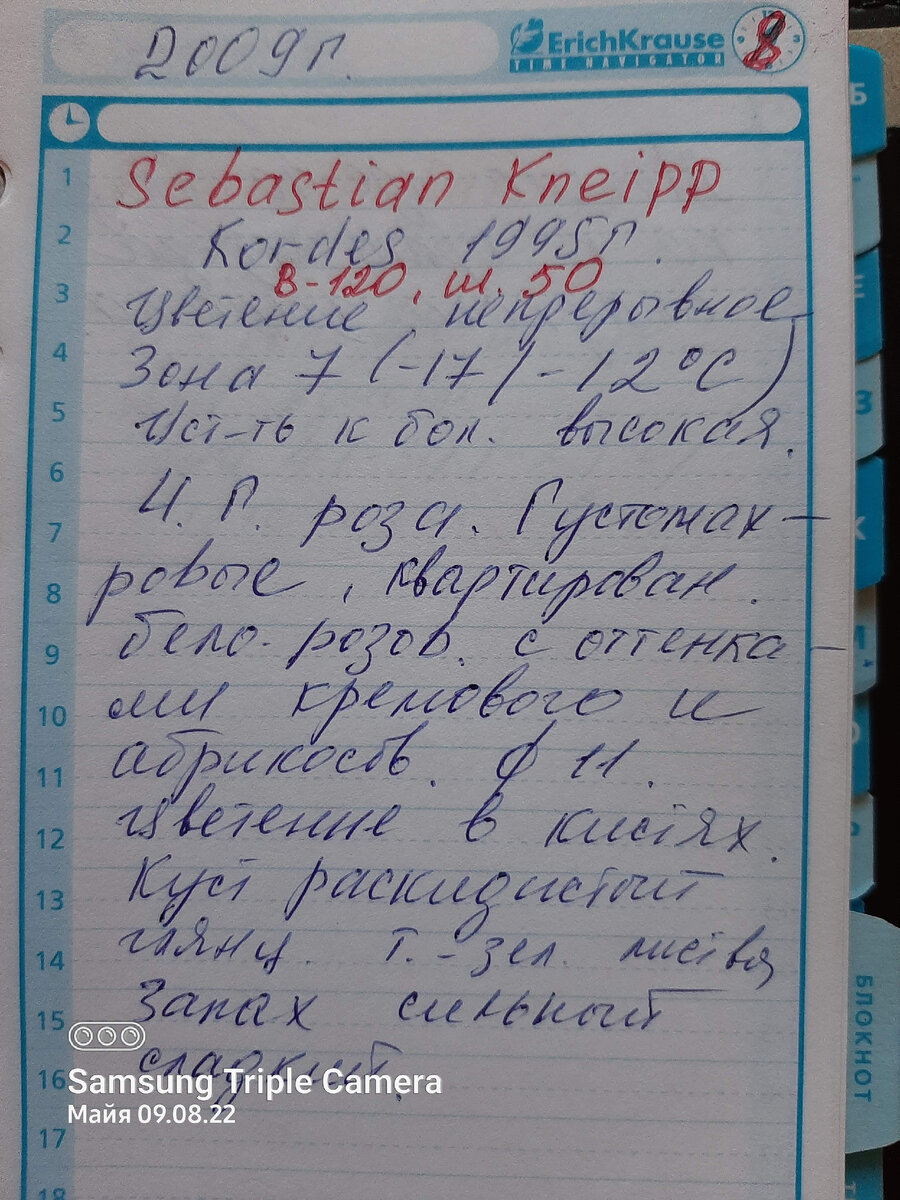 2009г.
ErichKrause
TIME NAVIGATOR
8
Sebastian Kneipp
Kordes 1995г.
в-120, ш. 50
Цветение непрерывное
Зона 7 (-17/-12°C)
Уст-ть к бол. высокая.
Ч. Г. роза. Густомах-
ровые, квартирован.
бело-розов. с оттенка-
ми кремового и
абриков. ф 11.
Цветение в кистях.
Куст раскидистый
глянц. т.-зел. листва
Запах сильный
сладкий.
1
2
3
4
5
6
7
8
9
10
11
12
13
14
15
16
17
18
Б
Е
З
К
БЛОКНОТ
Samsung Triple Camera
Майя 09.08.22